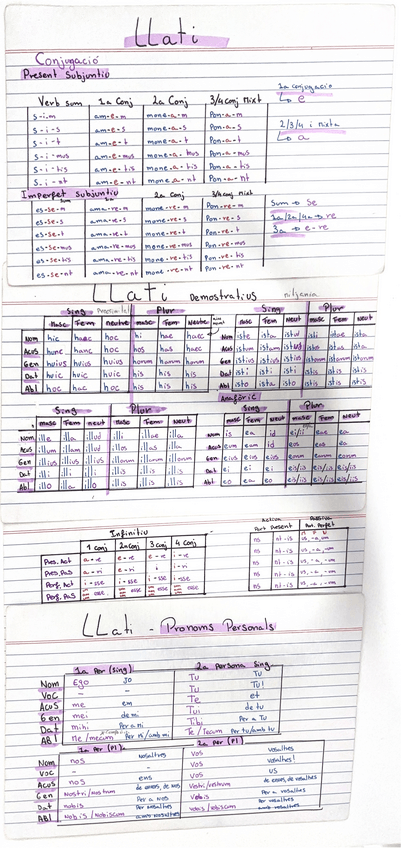 LLati
Conjugació
Present Subjuntiu
Verb sum 1a Conj 2a Conj 3/4 conj Mixt
s-i-m am-e-m mone-a-m Pon-a-m
s-i-s am-e-s mone-a-s Pon-a-s
s-i-t am-e-t mone-a-t Pon-a-t
s-i-mus am-e-mus mone-a-mus Pon-a-mus
s-i-tis am-e-tis mone-a-tis Pon-a-tis
s-i-nt am-e-nt mone-a-nt Pon-a-nt
1a conjugació
↳ e
2/3/4 i mixta
↳ a
Imperfet Subjuntiu
2a Conj 3/4 conj mixt
es-se-m ama-re-m mone-re-m Pon-re-m
es-se-s ama-re-s mone-re-s Pon-re-s
es-se-t ama-re-t mone-re-t Pon-re-t
es-se-mus ama-re-mus mone-re-mus Pon-re-mus
es-se-tis ama-re-tis mone-re-tis Pon-re-tis
es-se-nt ama-re-nt mone-re-nt Pon-re-nt
Sum → Se
1a/2a/4a → re
3a → e-re
LLati Demostratius
Sing Plur
Masc Fem neutre Masc Fem Neutre
Nom hic haec hoc hi hae haec
Acus hunc hanc hoc hos has haec
Gen huius huius huius horum harum horum
Dat huic huic huic his his his
Abl hoc hac hoc his his his
Sing Plur
Masc Fem Neut masc Fem Neut
Nom iste ista istud isti istae ista
Acus istum istam istud istos istas ista
Gen istius istius istius istorum istarum istorum
Dat isti isti isti istis istis istis
Abl isto ista isto istis istis istis
Sing Plur
masc Fem neut masc Fem Neut
Nom ille illa illud illi illae illa
Acus illum illam illud illos illas illa
Gen illius illius illius illorum illarum illorum
Dat illi illi illi illis illis illis
Abl illo illa illo illis illis illis
Anafòric
Sing Plur
masc Fem Neut masc Fem Neut
Nom is ea id ei/ii eae ea
Acus eum eam id eos eas ea
Gen eius eius eius eorum earum eorum
Dat ei ei ei eis/iis eis/iis eis/iis
Abl eo ea eo eis/iis eis/iis eis/iis
Infinitiu
1 conj 2a conj 3 conj 4 conj
Pres. Act a-re e-re e-re i-re
Pres. Pas a-ri e-ri i i-ri
Perf. Act i-sse i-sse i-sse i-sse
Perf. Pas esse esse esse esse
Part Present Part. Perfet
ns nt-is us, -a, -um
ns nt-is us, -a, -um
ns nt-is us, -a, -um
ns nt-is us, -a, -um
LLati - Pronoms Personals
1a Per (sing) 2a Persona Sing
Nom Ego Jo Tu Tu
Voc - - Tu Tu!
Acus me em Te et
Gen mei de mi Tui de tu
Dat mihi Per a mi Tibi Per a Tu
Abl Me / mecum Per mi/amb mi Te / Tecum Per tu/amb tu
1a Per (Pl) 2a Per (Pl)
Nom nos nosaltres vos vosaltres
Voc - - vos vosaltres!
Acus nos ens vos us
Gen Nostri / nostrum Vestri / vestrum
Dat nobis Per a nos Vobis Per a vosaltres
Abl Nobis / Nobiscum vobis / vobiscum